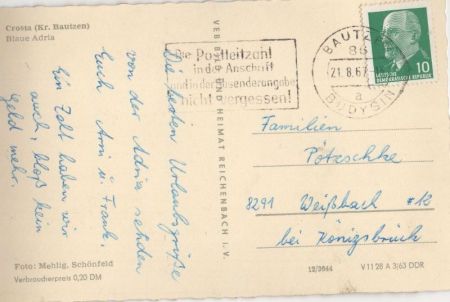 Crosta (Kr. Bautzen)
Blaue Adria
Die besten Urlaubsgrüße
von der Adria senden
Euch Arni u. Frank.
Ein Zelt haben wir
auch, bloß kein
Geld mehr.
Foto: Mehlig, Schönfeld
Verbraucherpreis 0,20 DM
VEB BILD UND HEIMAT REICHENBACH I. V.
Die Postleitzahl
in der Anschrift
und in der Absenderangabe
nicht vergessen!
BAUTZEN
86
21.8.67
a
BUDYŠIN
10
DEUTSCHE
DEMOKRATISCHE REPUBLIK
Familien
Pötzschke
8291 Weißbach #12
bei Königsbrück
12/3644
V 11 28 A 3/63 DDR